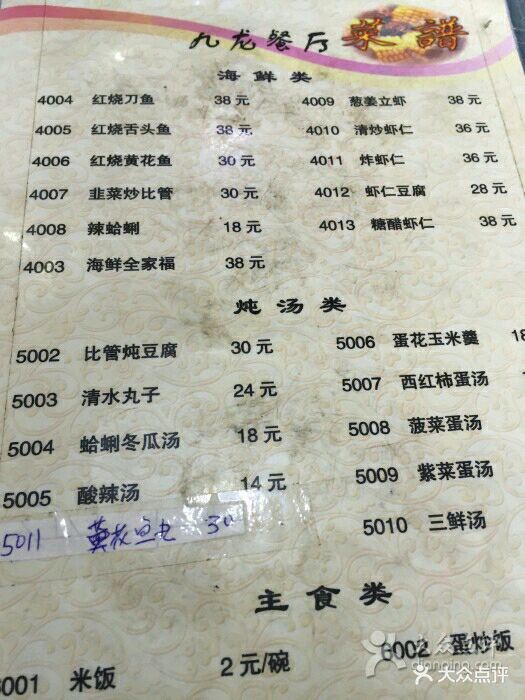 九龙餐厅 菜谱
海鲜类
4004 红烧刀鱼 38元 4009 葱姜立虾 38元
4005 红烧舌头鱼 38元 4010 清炒虾仁 36元
4006 红烧黄花鱼 30元 4011 炸虾仁 36元
4007 韭菜炒比管 30元 4012 虾仁豆腐 28元
4008 辣蛤蜊 18元 4013 糖醋虾仁 38元
4003 海鲜全家福 38元
炖汤类
5002 比管炖豆腐 30元 5006 蛋花玉米羹
5003 清水丸子 24元 5007 西红柿蛋汤
5004 蛤蜊冬瓜汤 18元 5008 菠菜蛋汤
5005 酸辣汤 14元 5009 紫菜蛋汤
5011 黄花鱼丸 30 5010 三鲜汤
主食类
6001 米饭 2元/碗 6002 蛋炒饭
大众点评
dianping.com